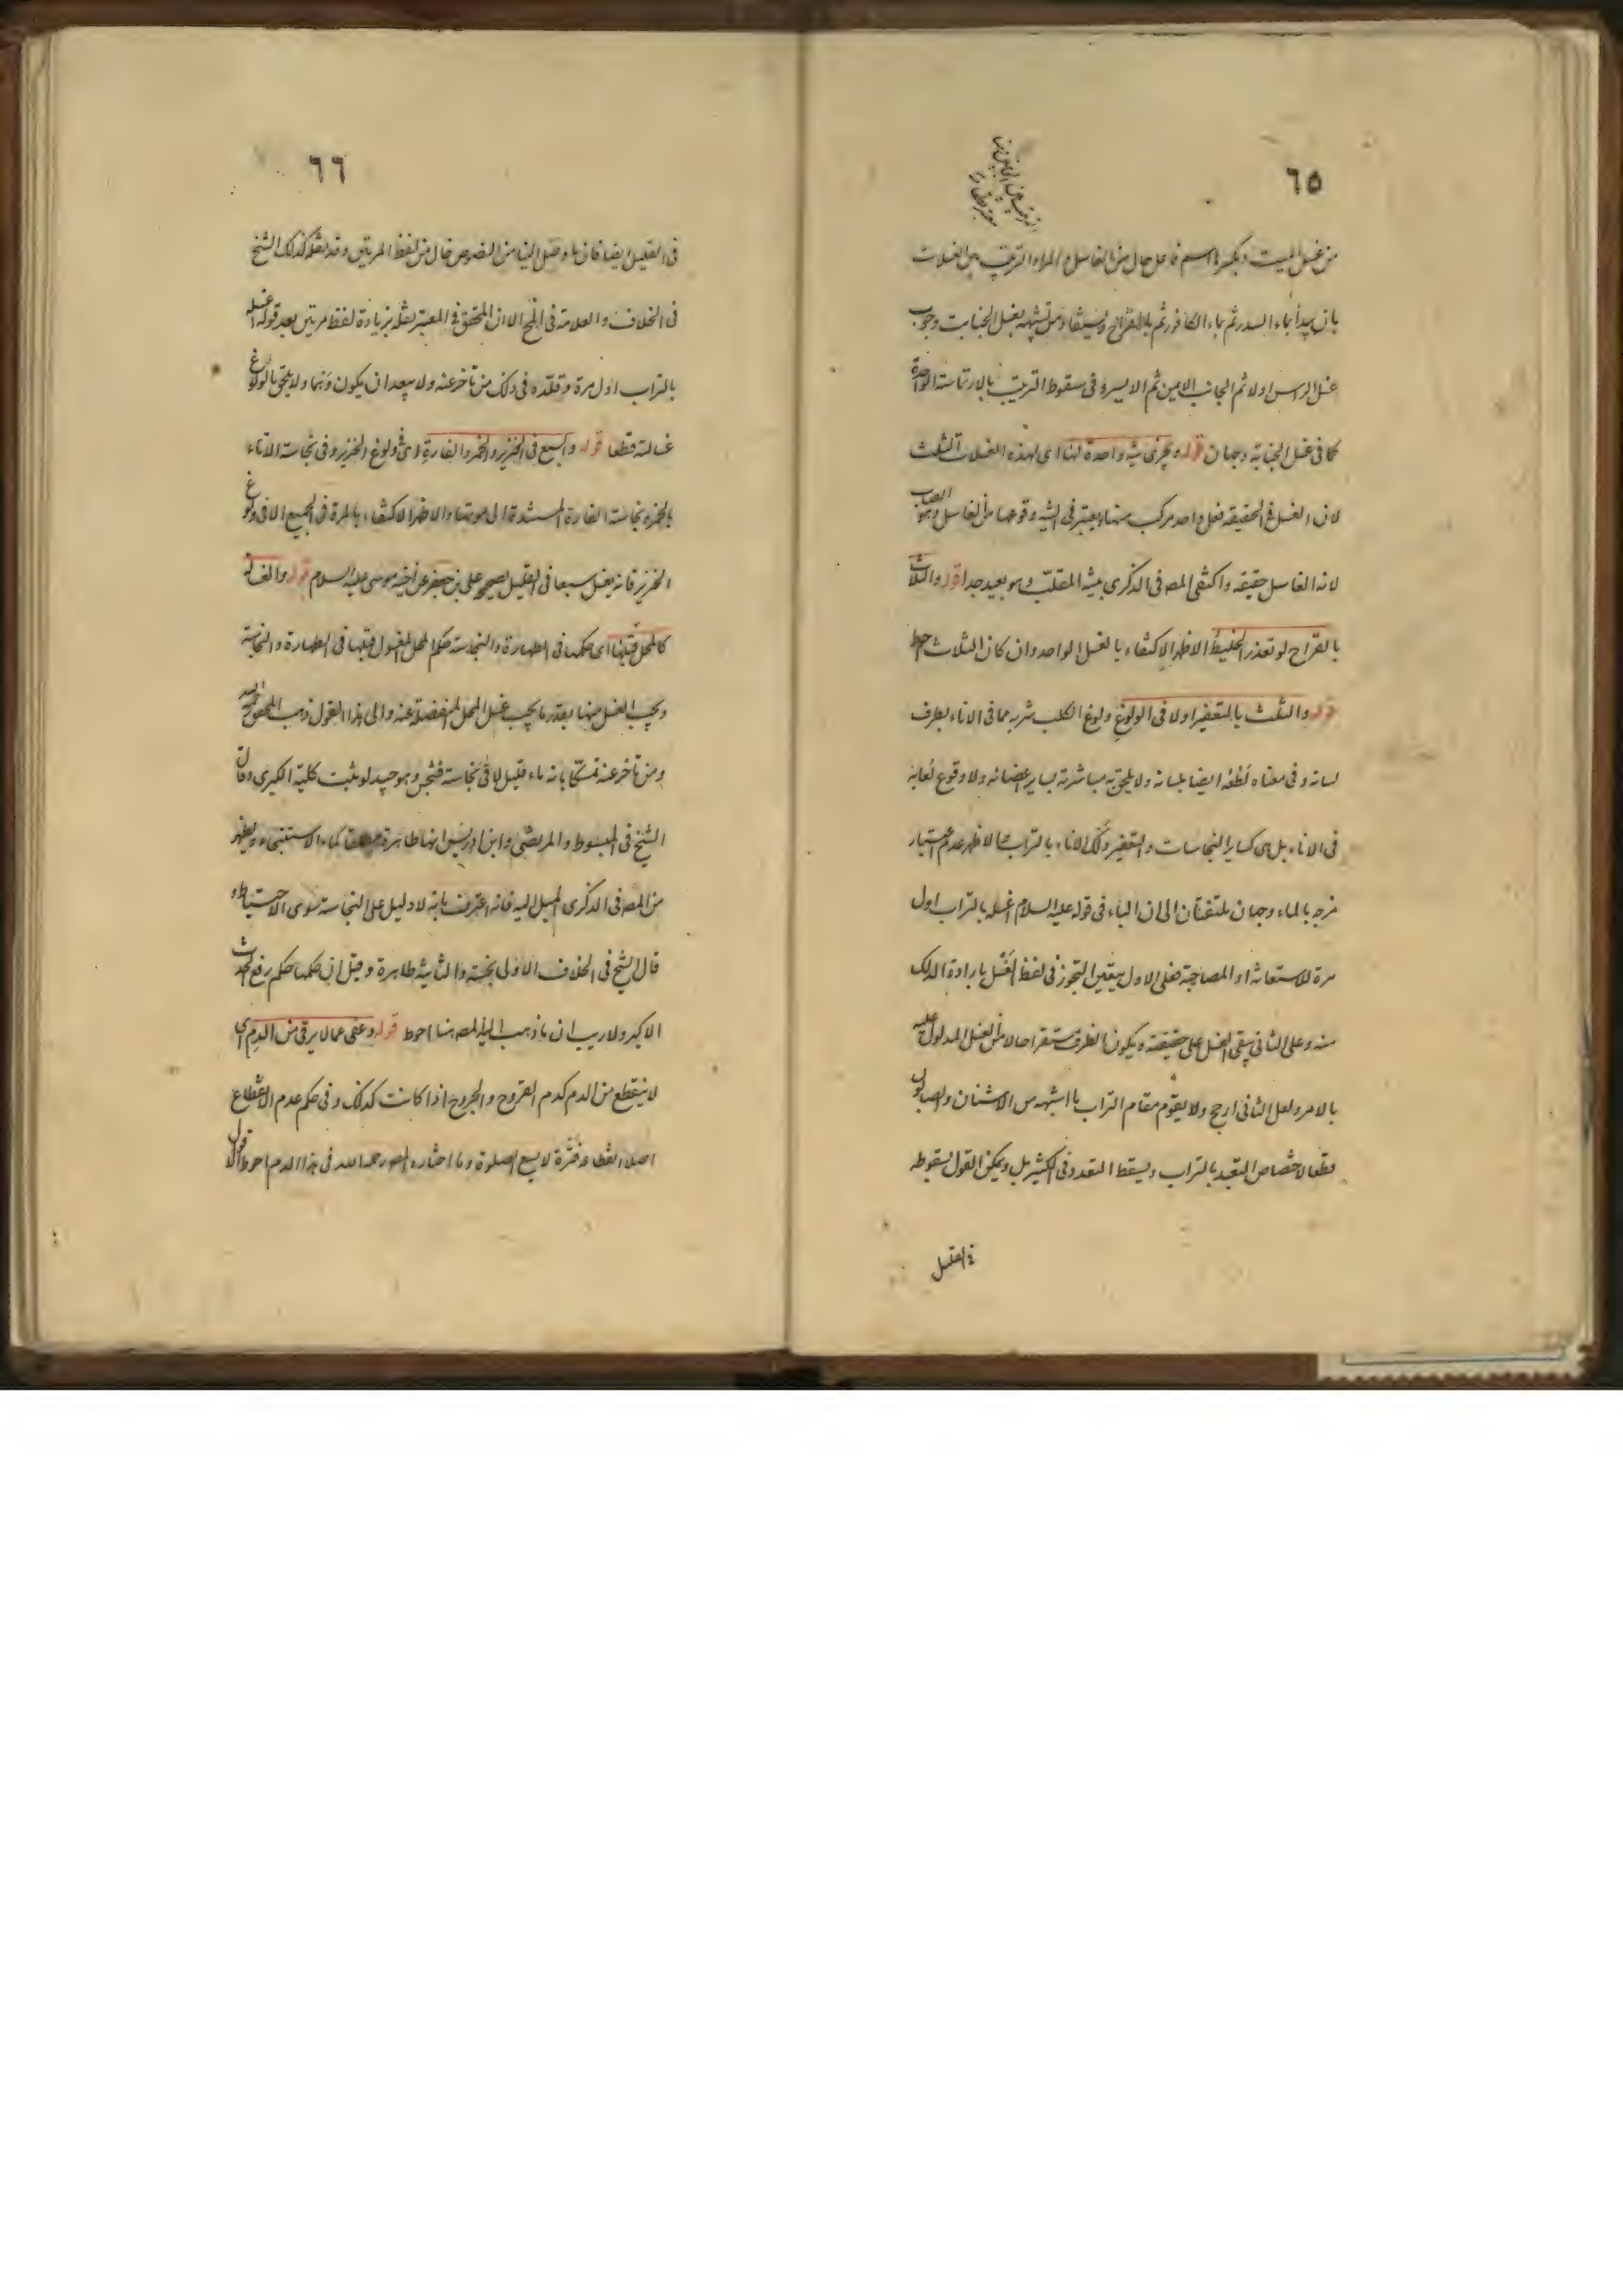 ٦٥
من غسل الميت وبكسرها اسم فاعل حال من الغاسل والمراد الترتيب بين الغسلات
بان يبدأ بماء السدر ثم بماء الكافور ثم بالقراح ويستفاد من تشبهه بغسل الجنابت وجوب
غسل الراس اولا ثم الجانب الايمن ثم الايسر وفى سقوط الترتيب بالارتماسة الواحدة
كما فى غسل الجنابة وجهان قوله ويجزى نية واحدة لها اى لهذه الغسلات الثلث
لان الغسل فى الحقيقة فعل واحد مركب منها ويعتبر فى النية وقوعها من الغاسل وهو الصاب
لانه الغاسل حقيقة واكتفى المصه فى الذكرى بنية المقلّب وهو بعيد جدا قوله والثلاث
بالقراح لو تعذر الخليط الاظهر الاكتفاء بالغسل الواحد وان كان الثلاث احوط
قوله والثلث بالتعفير اولا فى الولوغ ولوغ الكلب شربه مما فى الاناء بطرف
لسانه وفى معناه لطعه ايضا بلسانه ولا يلحق به مباشرته بساير اعضائه ولا وقوع لعابه
فى الاناء بل هى كساير النجاسات والتعفير دلك الاناء بالتراب والاظهر عدم اعتبار
مزجه بالماء وجهان ملتفتان الى ان الباء فى قوله عليه السلام اغسله بالتراب اول
مرة للاستعانة او المصاحبة فعلى الاول يتعين التجوز فى لفظ الغسل بارادة الدلك
منه وعلى الثانى يبقى الغسل على حقيقته ويكون الظرف مستقرا حالا من الغسل المدلول عليه
بالامر ولعل الثانى ارجح ولا يقوم مقام التراب ما اشبهه من الاشنان والصابون
قطعا لاختصاص التعبد بالتراب ويسقط التعدد فى الكثير بل ويمكن القول بسقوطه
فى القليل
٦٦
فى القليل ايضا فان ما وصل الينا من النصوص خال من لفظ المرتين وقد نقله كذلك الشيخ
فى الخلاف والعلامة فى الا ان المحقق فى المعتبر نقله بزيادة لفظ مرتين بعد قوله اغسله
بالتراب اول مرة وقلّده فى ذلك من تأخر عنه ولا يبعد ان يكون وهما ولا يلحق بالولوغ
غسالته قطعا قوله والسبع فى الخنزير والخمر والفارة اى فى ولوغ الخنزير وفى نجاسة الاناء
بالخمر ونجاسة الفارة المستندة الى موتها والاظهر الاكتفاء بالمرة فى الجميع الا فى ولوغ
الخنزير فانه يغسل سبعا فى القليل لصحيحة على بن جعفر عن اخيه موسى عليه السلام قوله والغسالة
كالمحل قبلها اى حكمها فى الطهارة والنجاسة حكم المحل المغسول قبلها فى الطهارة والنجاسة
ويجب الغسل منها بقدر ما يجب غسل المحل المنفصلة عنه والى هذا القول ذهب المحقق
ومن تأخر عنه تمسكا بانه ماء قليل لاقى نجاسة فتنجس وهو جيد لو ثبت كلية الكبرى وقال
الشيخ فى المبسوط والمرتضى وابن ادريس انها طاهرة مطلقا كماء الاستنجاء ويظهر
من المصه فى الذكرى الميل اليه فانه اعترف بانه لا دليل على النجاسة سوى الاحتياط و
قال الشيخ فى الخلاف الاولى نجسة والثانية طاهرة وقيل ان حكمها حكم رفع الحدث
الاكبر ولا ريب ان ما ذهب اليه المصه هنا احوط قوله وعفى عما لا يرقى من الدم اى
لا ينقطع من الدم كدم القروح والجروح اذا كانت كذلك وفى حكم عدم الانقطاع
اصلا انقطاعه فترة لا يسع الصلوة وما اختاره المصه رحمه الله فى هذا الدم احوط الاقوال